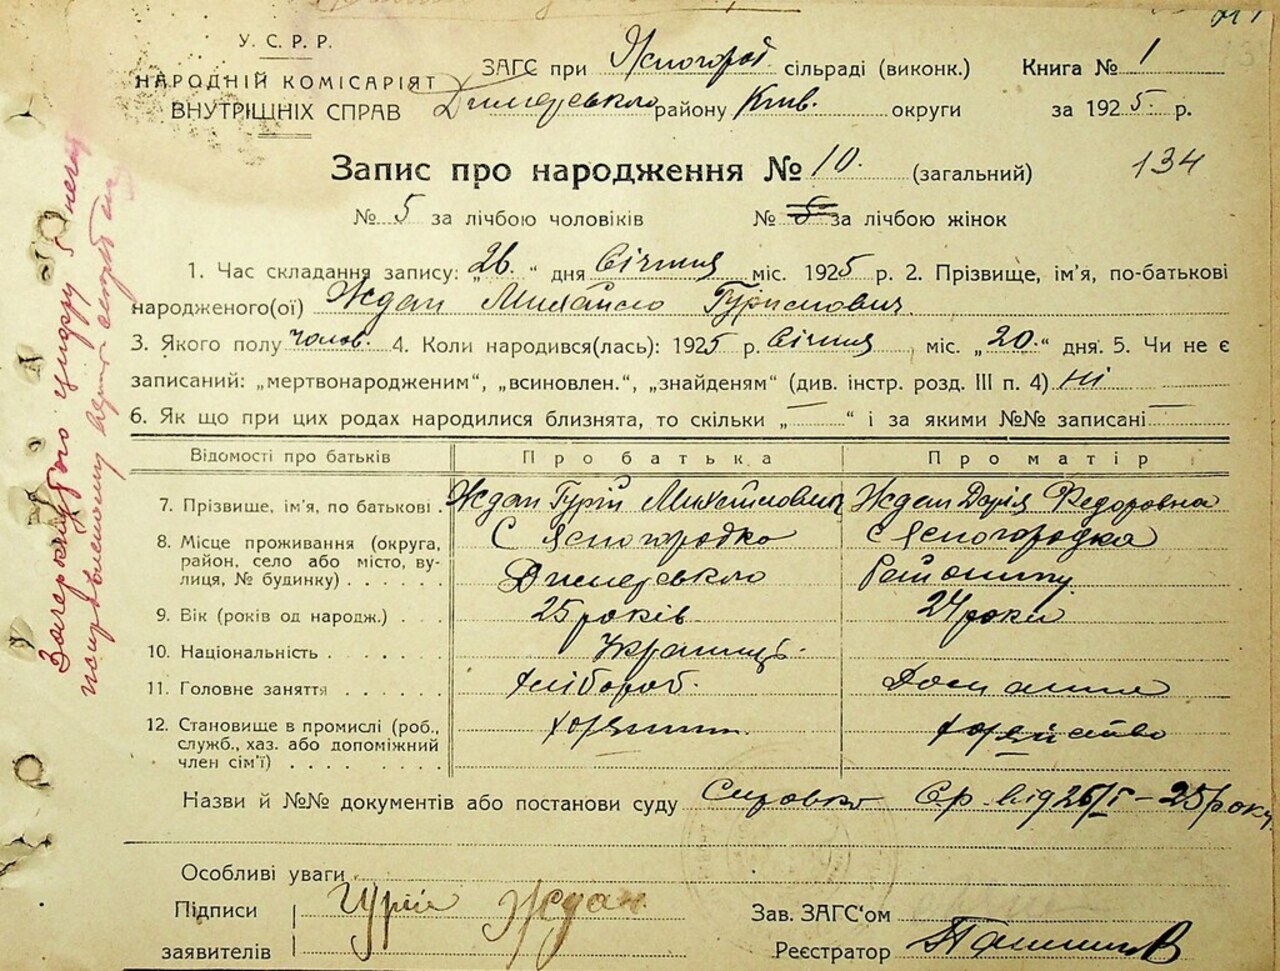 У. С. Р. Р.
НАРОДНІЙ КОМІСАРІЯТ
ВНУТРІШНІХ СПРАВ
ЗАГС при Ясногород. сільраді (виконк.) Книга № 1
Димерського району Київ. округи за 1925 р.
Запис про народження № 10. (загальний) 134
№ 5 за лічбою чоловіків № 5 за лічбою жінок
1. Час складання запису: „26.“ дня Січня міс. 1925 р. 2. Прізвище, ім'я, по-батькові
народженого(ої) Ждан Михайло Гурійович
3. Якого полу чолов. 4. Коли народився(лась): 1925 р. Січня міс. „20.“ дня. 5. Чи не є
записаний: „мертвонародженим“, „всиновлен.“, „знайденям“ (див. інстр. розд. III п. 4) ні
6. Як що при цих родах народилися близнята, то скільки „ — “ і за якими №№ записані —
Відомості про батьків Про батька Про матір
7. Прізвище, ім'я, по батькові . Ждан Гурій Михайлович Ждан Дарія Федоровна
8. Місце проживання (округа, С Ясногородка С Ясногородка
район, село або місто, ву-
лиця, № будинку) . . . . . . Димерського Району
9. Вік (років од народж.) . . . 25 років 24 роки
10. Національність . . . . . . Українці
11. Головне заняття . . . . . . хлібороб.
12. Становище в промислі (роб.,
служб., хаз. або допоміжний
член сім'ї) . . . . . . . . .
Назви й №№ документів або постанови суду Справка Ср від 26/I – 25 року
Особливі уваги
Підписи Гурій Ждан Зав. ЗАГС'ом
заявителів Реєстратор